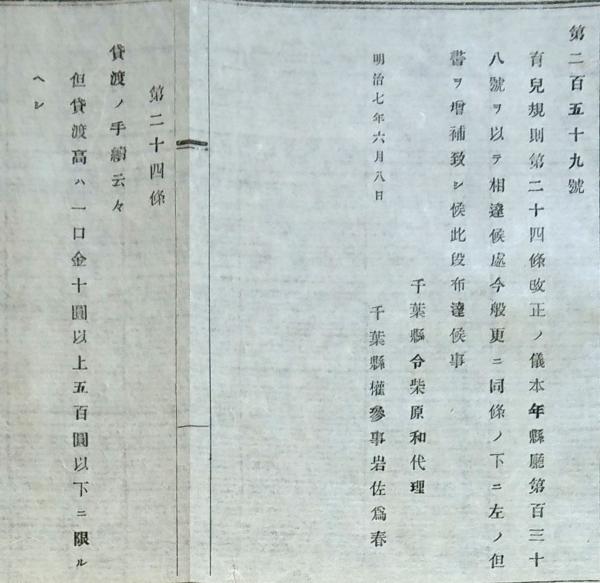 第二百五十九號
育兒規則第二十四條改正ノ儀本年縣廳第百三十
八號ヲ以テ相達候處今般更ニ同條ノ下ニ左ノ但
書ヲ增補致シ候此段布達候事
明治七年六月八日
千葉縣令柴原和代理
千葉縣權參事岩佐爲春
第二十四條
貸渡ノ手續云々
但貸渡高ハ一口金十圓以上五百圓以下ニ限ル
ヘシ